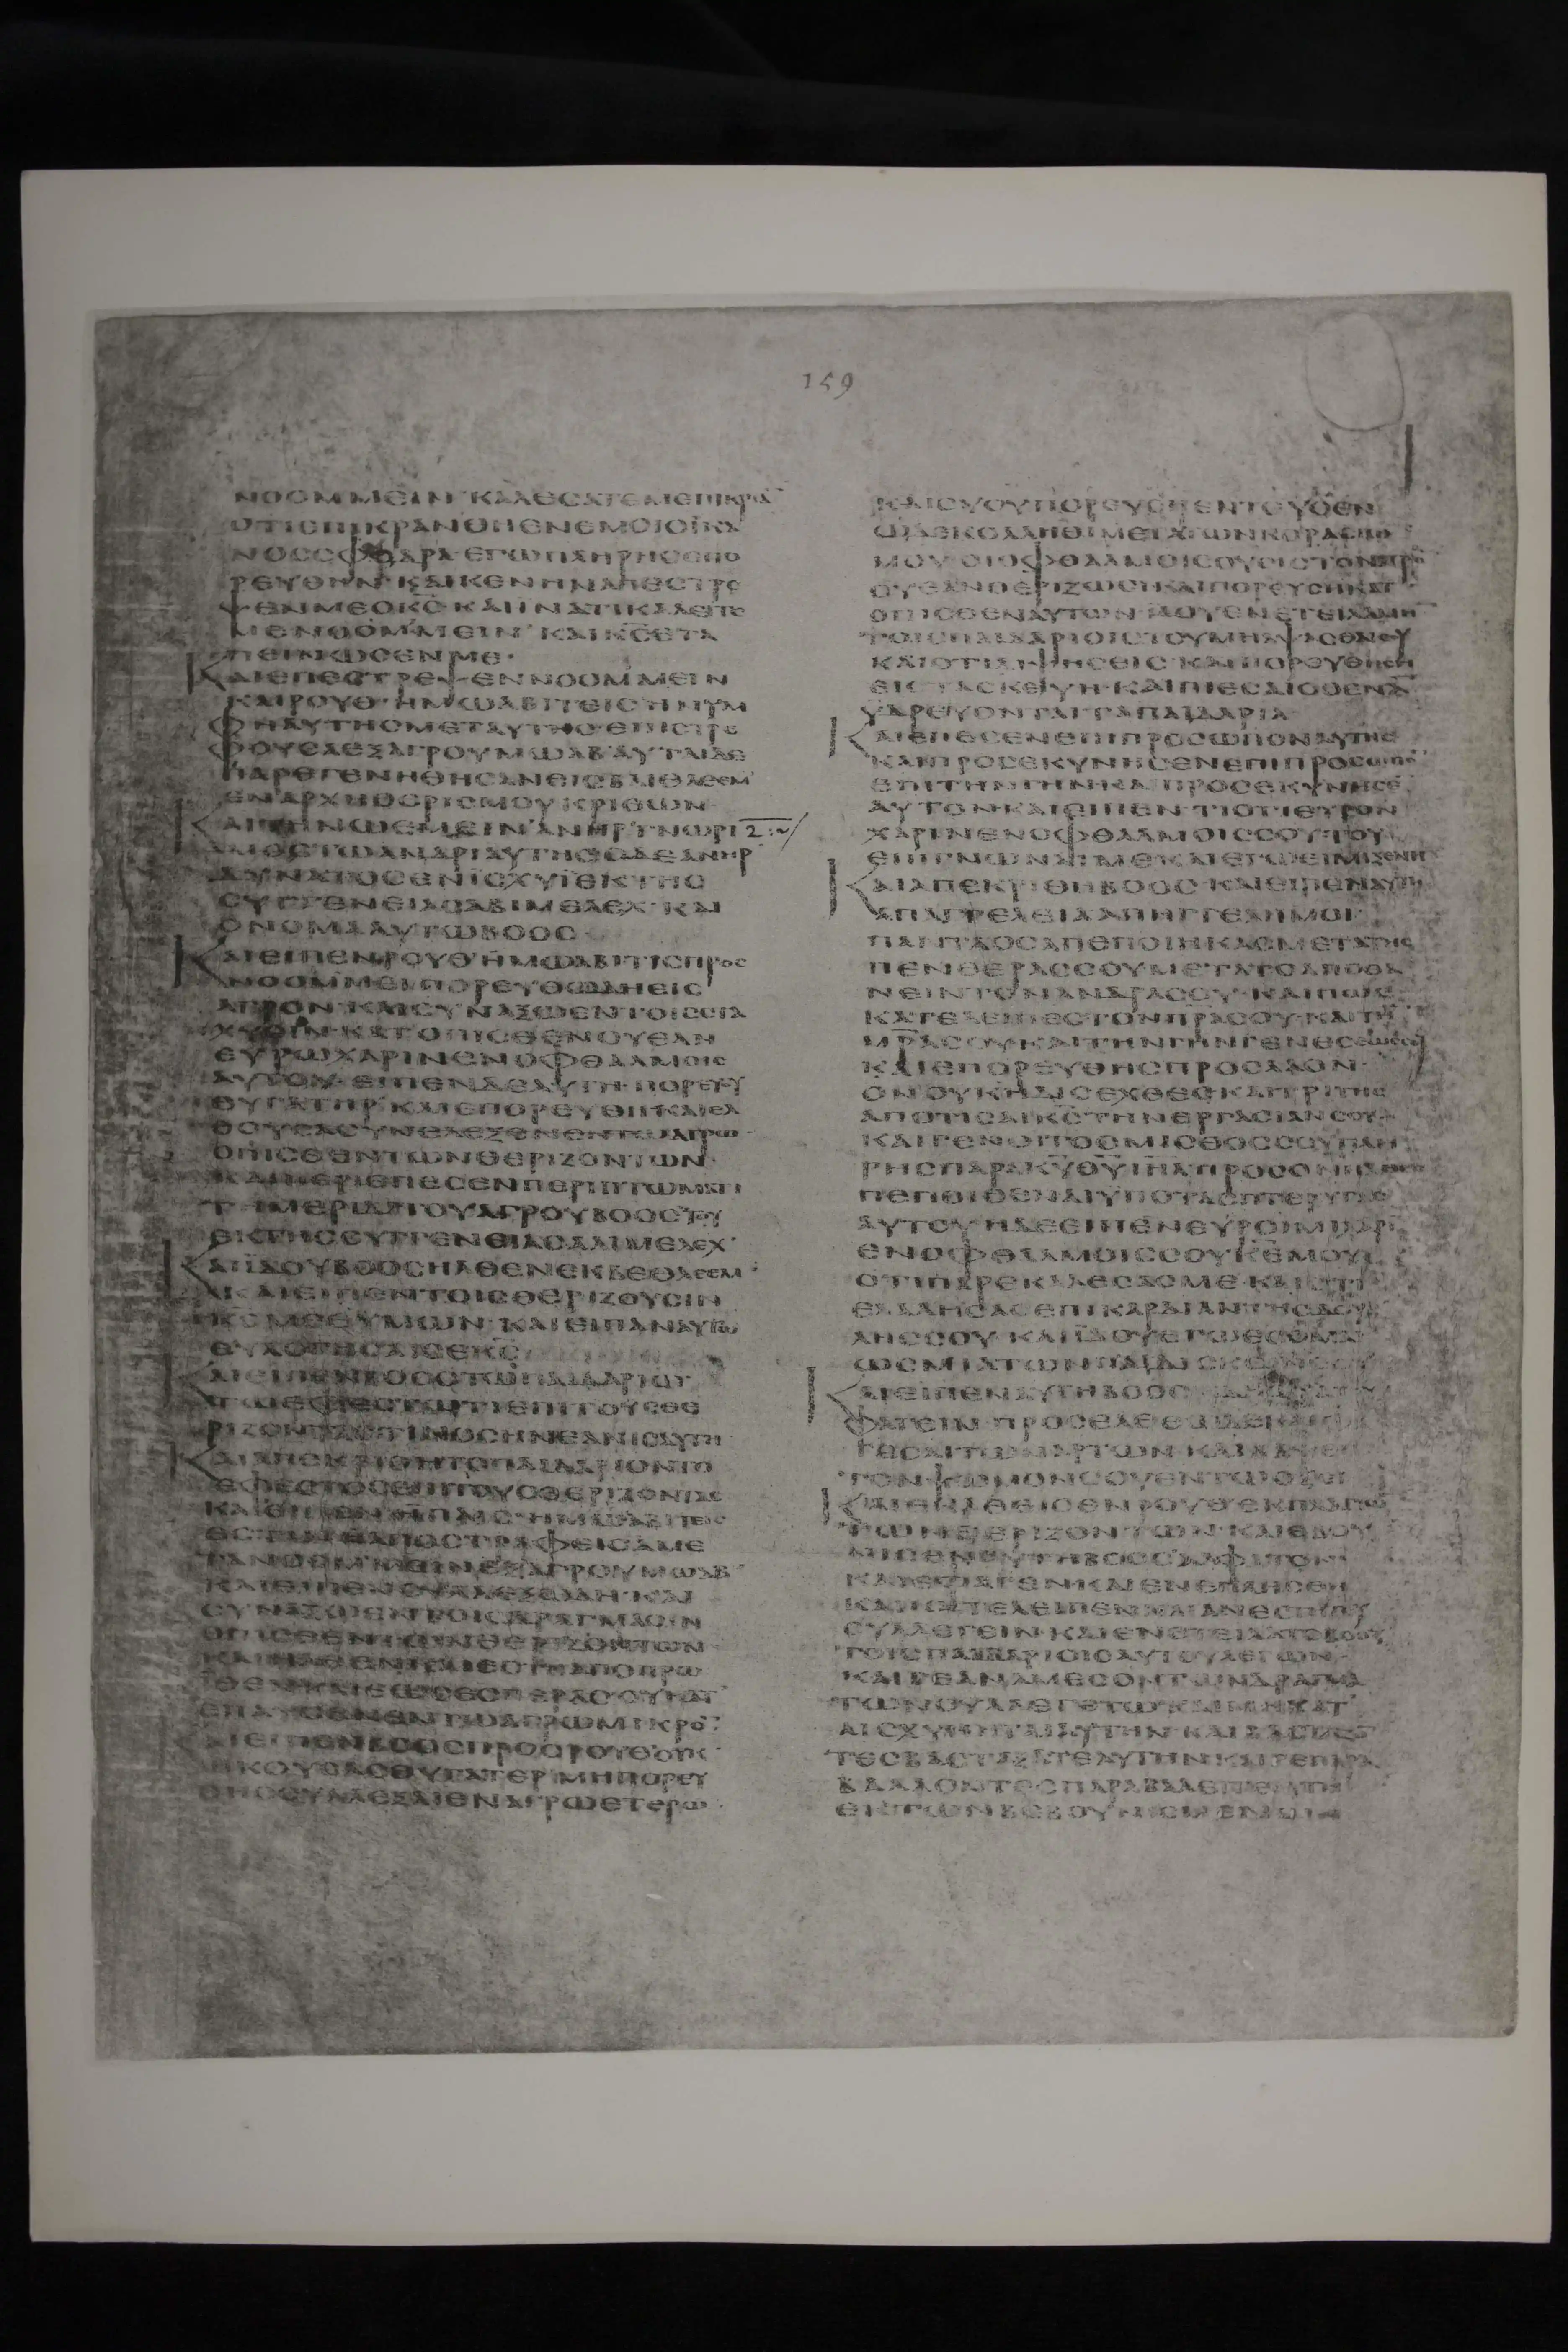 159
ΝΟΟΜΜΕΙΝ ΚΑΛΕΣΑΤΕΜΕΠΙΚΡΑ̅
ΟΤΙΕΠΙΚΡΑΝΘΗΕΝΕΜΟΙΟΪΚΑ
ΝΟΣΣΦΟΔΡΑ ΕΓΩΠΛΗΡΗΣΕΠΟ
ΡΕΥΘΗΝ ΚΑΙΚΕΝΗΝΑΠΕΣΤΡΕ
ΨΕΝΜΕΟΚ̅Σ̅ ΚΑΙΪΝΑΤΙΚΑΛΕΙΤΕ
ΜΕΝΟΟΜΜΕΙΝ ΚΑΙΚ̅Σ̅ΕΤΑ
ΠΕΙΝΩΣΕΝΜΕ
ΚΑΙΕΠΕΣΤΡΕΨΕΝΝΟΟΜΜΕΙΝ
ΚΑΙΡΟΥΘ ΗΜΩΑΒΙΤΕΙΣΗΝΥΜ
ΦΗΑΥΤΗΣΜΕΤΑΥΤΗΣ ΕΠΙΣΤΡΕ
ΦΟΥΣΑΕΞΑΓΡΟΥΜΩΑΒ ΑΥΤΑΙΔΕ
ΠΑΡΕΓΕΝΗΘΗΣΑΝΕΙΣΒΑΙΘΛΕΕΜ
ΕΝΑΡΧΗΘΕΡΙΣΜΟΥΚΡΙΘΩΝ
ΚΑΙΤΗΝΩΕΜΕΙΝ ΑΝΗΡΓΝΩΡΙ 2
ΜΟΣΤΩΑΝΔΡΙΑΥΤΗΣΟΔΕΑΝΗΡ
ΔΥΝΑΤΟΣΕΝΪΣΧΥΪΕΚΤΗΣ
ΣΥΓΓΕΝΕΙΑΣΑΒΙΜΕΛΕΧ ΚΑΙ
ΟΝΟΜΑΑΥΤΩΒΟΟΣ
ΚΑΙΕΙΠΕΝΡΟΥΘ ΗΜΩΑΒΙΤΙΣΠΡΟΣ
ΝΟΟΜΜΕΙ ΠΟΡΕΥΘΩΔΗΕΙΣ
ΑΓΡΟΝ ΚΑΙΣΥΝΑΞΩΕΝΤΟΙΣΣΤΑ
ΧΥΣΙΝ ΚΑΤΟΠΙΣΘΕΝΟΥΕΑΝ
ΕΥΡΩΧΑΡΙΝΕΝΟΦΘΑΛΜΟΙΣ
ΑΥΤΟΥ ΕΙΠΕΝΔΕΑΥΤΗ ΠΟΡΕΥΟΥ
ΘΥΓΑΤΗΡ ΚΑΙΕΠΟΡΕΥΘΗ ΚΑΙΕΛ
ΘΟΥΣΑΣΥΝΕΛΕΞΕΝΕΝΤΩΑΓΡΩ
ΟΠΙΣΘΕΝΤΩΝΘΕΡΙΖΟΝΤΩΝ
ΚΑΙΠΕΡΙΕΠΕΣΕΝΠΕΡΙΠΤΩΜΑΤΙ
ΤΗΜΕΡΙΔΙΤΟΥΑΓΡΟΥΒΟΟΣΤΟΥ
ΕΚΤΗΣΣΥΓΓΕΝΕΙΑΣΑΛΙΜΕΛΕΧ
ΚΑΙΪΔΟΥΒΟΟΣΗΛΘΕΝΕΚΒΕΘΛΕΕΜ
ΚΑΙΕΙΠΕΝΤΟΙΣΘΕΡΙΖΟΥΣΙΝ
Κ̅Σ̅ΜΕΘΥΜΩΝ ΚΑΙΕΙΠΑΝΑΥΤΩ
ΕΥΛΟΓΗΣΑΙΣΕΚ̅Σ̅
ΚΑΙΕΙΠΕΝΒΟΟΣΤΩΠΑΙΔΑΡΙΩΑΥ
ΤΩΕΦΕΣΤΩΤΙΕΠΙΤΟΥΣΘΕ
ΡΙΖΟΝΤΑΣ ΤΙΝΟΣΗΝΕΑΝΙΣΑΥΤΗ
ΚΑΙΑΠΕΚΡΙΘΗΤΟΠΑΙΔΑΡΙΟΝΤΟ
ΕΦΕΣΤΟΣΕΠΙΤΟΥΣΘΕΡΙΖΟΝΤΑΣ
ΚΑΙΕΙΠΕΝ ΗΠΑΙΣ ΗΜΩΑΒΙΤΕΙΣ
ΕΣΤΙΝΗΑΠΟΣΤΡΑΦΕΙΣΑΜΕ
ΤΑΝΟΕΜΜΕΙΝΕΞΑΓΡΟΥΜΩΑΒ
ΚΑΙΕΙΠΕΝΣΥΛΛΕΞΩΔΗ ΚΑΙ
ΣΥΝΑΞΩΕΝΤΟΙΣΔΡΑΓΜΑΣΙΝ
ΟΠΙΣΘΕΝΤΩΝΘΕΡΙΖΟΝΤΩΝ
ΚΑΙΗΛΘΕΝΚΑΙΕΣΤΗΑΠΟΠΡΩ
ΪΘΕΝΚΑΙΕΩΣΕΣΠΕΡΑΣΟΥΚΑΤ
ΕΠΑΥΣΕΝΕΝΤΩΑΓΡΩΜΙΚΡΟ̅
ΚΑΙΕΙΠΕΝΒΟΟΣΠΡΟΣΡΟΥΘΟΥΚ
ΗΚΟΥΣΑΣΘΥΓΑΤΕΡ ΜΗΠΟΡΕΥ
ΘΗΣΣΥΛΛΕΞΑΙΕΝΑΓΡΩΕΤΕΡΩ
ΚΑΙΣΥΟΥΠΟΡΕΥΣΗΕΝΤΕΥΘΕΝ
ΩΔΕΚΟΛΛΗΘΗΤΙΜΕΤΑΤΩΝΚΟΡΑΣΙΩΝ
ΜΟΥ ΟΙΟΦΘΑΛΜΟΙΣΟΥΕΙΣΤΟΝΑΓΡΟ̅
ΟΥΕΑΝΘΕΡΙΖΩΣΙΚΑΙΠΟΡΕΥΣΗΚΑΤ
ΟΠΙΣΘΕΝΑΥΤΩΝ ΪΔΟΥΕΝΕΤΕΙΛΑΜΗ̅
ΤΟΙΣΠΑΙΔΑΡΙΟΙΣΤΟΥΜΗΑΨΑΣΘΑΙΣΟΥ
ΚΑΙΟΤΙΔΙΨΗΣΕΙΣ ΚΑΙΠΟΡΕΥΘΗΣΗ
ΕΙΣΤΑΣΚΕΥΗ ΚΑΙΠΙΕΣΑΙΟΘΕΝΑ̅
ΥΔΡΕΥΟΝΤΑΙΤΑΠΑΙΔΑΡΙΑ
ΚΑΙΕΠΕΣΕΝΕΠΙΠΡΟΣΩΠΟΝΑΥΤΗΣ
ΚΑΙΠΡΟΣΕΚΥΝΗΣΕΝΕΠΙΠΡΟΣΩΠΟ̅
ΕΠΙΤΗΝΓΗΝΚΑΙΠΡΟΣΕΚΥΝΗΣΕ̅
ΑΥΤΟΝΚΑΙΕΙΠΕΝ ΤΙΟΤΙΕΥΡΟΝ
ΧΑΡΙΝΕΝΟΦΘΑΛΜΟΙΣΣΟΥΤΟΥ
ΕΠΙΓΝΩΝΑΙΜΕΚΑΙΕΓΩΕΙΜΙΞΕΝΗ
ΚΑΙΑΠΕΚΡΙΘΗΒΟΟΣ ΚΑΙΕΙΠΕΝΑΥΤΗ
ΑΠΑΓΓΕΛΕΙΑΑΠΗΓΓΕΛΗΜΟΙ
ΠΑΝΤΑΟΣΑΠΕΠΟΙΗΚΑΣΜΕΤΑΤΗΣ
ΠΕΝΘΕΡΑΣΣΟΥΜΕΤΑΤΟΑΠΟΘΑ
ΝΕΙΝΤΟΝΑΝΔΡΑΣΟΥ ΚΑΙΠΩΣ
ΚΑΤΕΛΕΙΠΕΣΤΟΝΠ̅Ρ̅ΑΣΟΥΚΑΙΤΗ̅
Μ̅Ρ̅ΑΣΟΥΚΑΙΤΗΝΓΗΝΓΕΝΕΣΕΩΣΣΟΥ
ΚΑΙΕΠΟΡΕΥΘΗΣΠΡΟΣΛΑΟΝ
ΟΝΟΥΚΗΔΙΣΕΧΘΕΣΚΑΙΤΡΙΤΗΣ
ΑΠΟΤΙΣΑΙΚ̅Σ̅ΤΗΝΕΡΓΑΣΙΑΝΣΟΥ
ΚΑΙΓΕΝΟΙΤΟΟΜΙΣΘΟΣΣΟΥΠΛΗ
ΡΗΣΠΑΡΑΚ̅Υ̅Θ̅Υ̅Ι̅Η̅Λ̅ΠΡΟΣΟΝΗΛΘΕΣ
ΠΕΠΟΙΘΕΝΑΙΥΠΟΤΑΣΠΤΕΡΥΓΑΣ
ΑΥΤΟΥ ΗΔΕΕΙΠΕΝΕΥΡΟΙΜΙΧΑΡΙ̅
ΕΝΟΦΘΑΛΜΟΙΣΣΟΥΚ̅Ε̅ΜΟΥ
ΟΤΙΠΑΡΕΚΑΛΕΣΑΣΜΕ ΚΑΙΟΤΙ
ΕΛΑΛΗΣΑΣΕΠΙΚΑΡΔΙΑΝΤΗΣΔΟΥ
ΛΗΣΣΟΥ ΚΑΙΪΔΟΥΕΓΩΕΣΟΜΑΙ
ΩΣΜΙΑΤΩΝΠΑΙΔΙΣΚΩΝΣΟΥ
ΚΑΙΕΙΠΕΝΑΥΤΗΒΟΟΣ
ΦΑΓΕΙΝ ΠΡΟΣΕΛΘΕ
ΓΕΣΑΙΤΩΝΑΡΤΩΝ ΚΑΙ
ΤΟΝΨΩΜΟΝΣΟΥΕΝΤΩΟΞΕΙ
ΚΑΙΕΚΑΘΕΙΣΕΝΡΟΥΘΕΚΠΛΑΓΙΩ̅
ΤΩΝΘΕΡΙΖΟΝΤΩΝ ΚΑΙΕΒΟΥ
ΝΙΣΕΝΑΥΤΗΒΟΟΣΑΛΦΙΤΟΝ
ΚΑΙΕΦΑΓΕΝΚΑΙΕΝΕΠΛΗΣΘΗ
ΚΑΙΚΑΤΕΛΕΙΠΕΝ ΚΑΙΑΝΕΣΤΗΤΟΥ
ΣΥΛΛΕΓΕΙΝ ΚΑΙΕΝΕΤΕΙΛΑΤΟΒΟΟΣ
ΤΟΙΣΠΑΙΔΑΡΙΟΙΣΑΥΤΟΥΛΕΓΩΝ
ΚΑΙΓΕΑΝΑΜΕΣΟΝΤΩΝΔΡΑΓΜΑ
ΤΩΝΣΥΛΛΕΓΕΤΩΚΑΙΜΗΚΑΤ
ΑΙΣΧΥΝΗΤΑΙΑΥΤΗΝ ΚΑΙΒΑΣΤΑΖ
ΤΕΣΒΑΣΤΑΞΑΤΕΑΥΤΗΝ ΚΑΙΓΕΠΑΡΑ
ΒΑΛΛΟΝΤΕΣΠΑΡΑΒΑΛΕΙΤΕΑΥΤΗ
ΕΚΤΩΝΒΕΒΟΥΝΙΣΜΕΝΩΝ